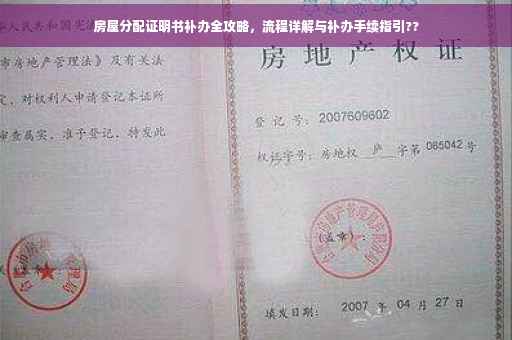 房屋分配证明书补办全攻略，流程详解与补办手续指引??
人民共和国宪
市房地产管理法》及有关法
定，对权利人申请登记本证所
审查属实，准予登记，特发此
房地产权证
登记号：2007609602
权证字号：房地权 庐 字第 065042 号
(盖章)：
填发日期：2007 年 04 月 27 日